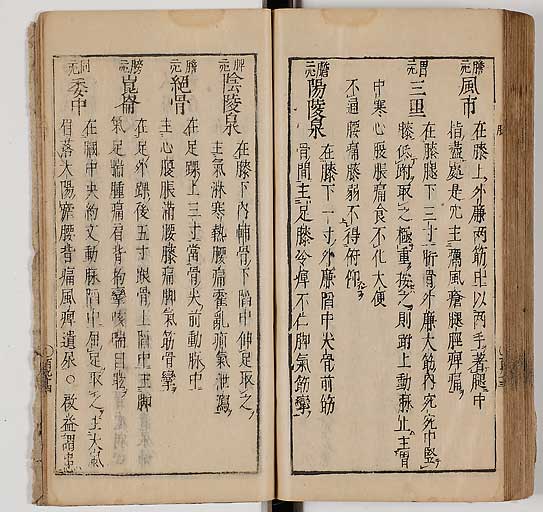 膽二元 風市 在膝上外廉両筋中以両手著腿中
指盡處是穴主癘風瘡腿脛痺痛
胃二元 三里 在膝腰下三寸䯒骨外廉大筋内宛宛中竪
膝低跗取之極重按之則跗上動脉止主胃
中寒心腹脹痛食不化大便
不通腰痛膝弱不得俯仰
膽二元 陽陵泉 在膝下一寸外廉陷中尖骨前筋
骨間主足膝冷痺不仁脚氣筋攣
脾二元 陰陵泉 在膝下内輔骨下陷中伸足取之
主氣淋寒熱腰痛霍亂疝氣泄瀉
膽二元 絕骨 在足踝上三寸當骨尖前動脉中
主心腹脹滿腰膝痛脚氣筋骨攣
膀二元 崑崙 在足外踝後五寸跟骨上陷中主脚
氣足腨腫痛肩背拘攣咳喘目眩
同二元 委中 在膕中央約文動脉陷中伸足取之主大氣
眉落太陽瘧腰背痛風痺遺尿○啟益謂患